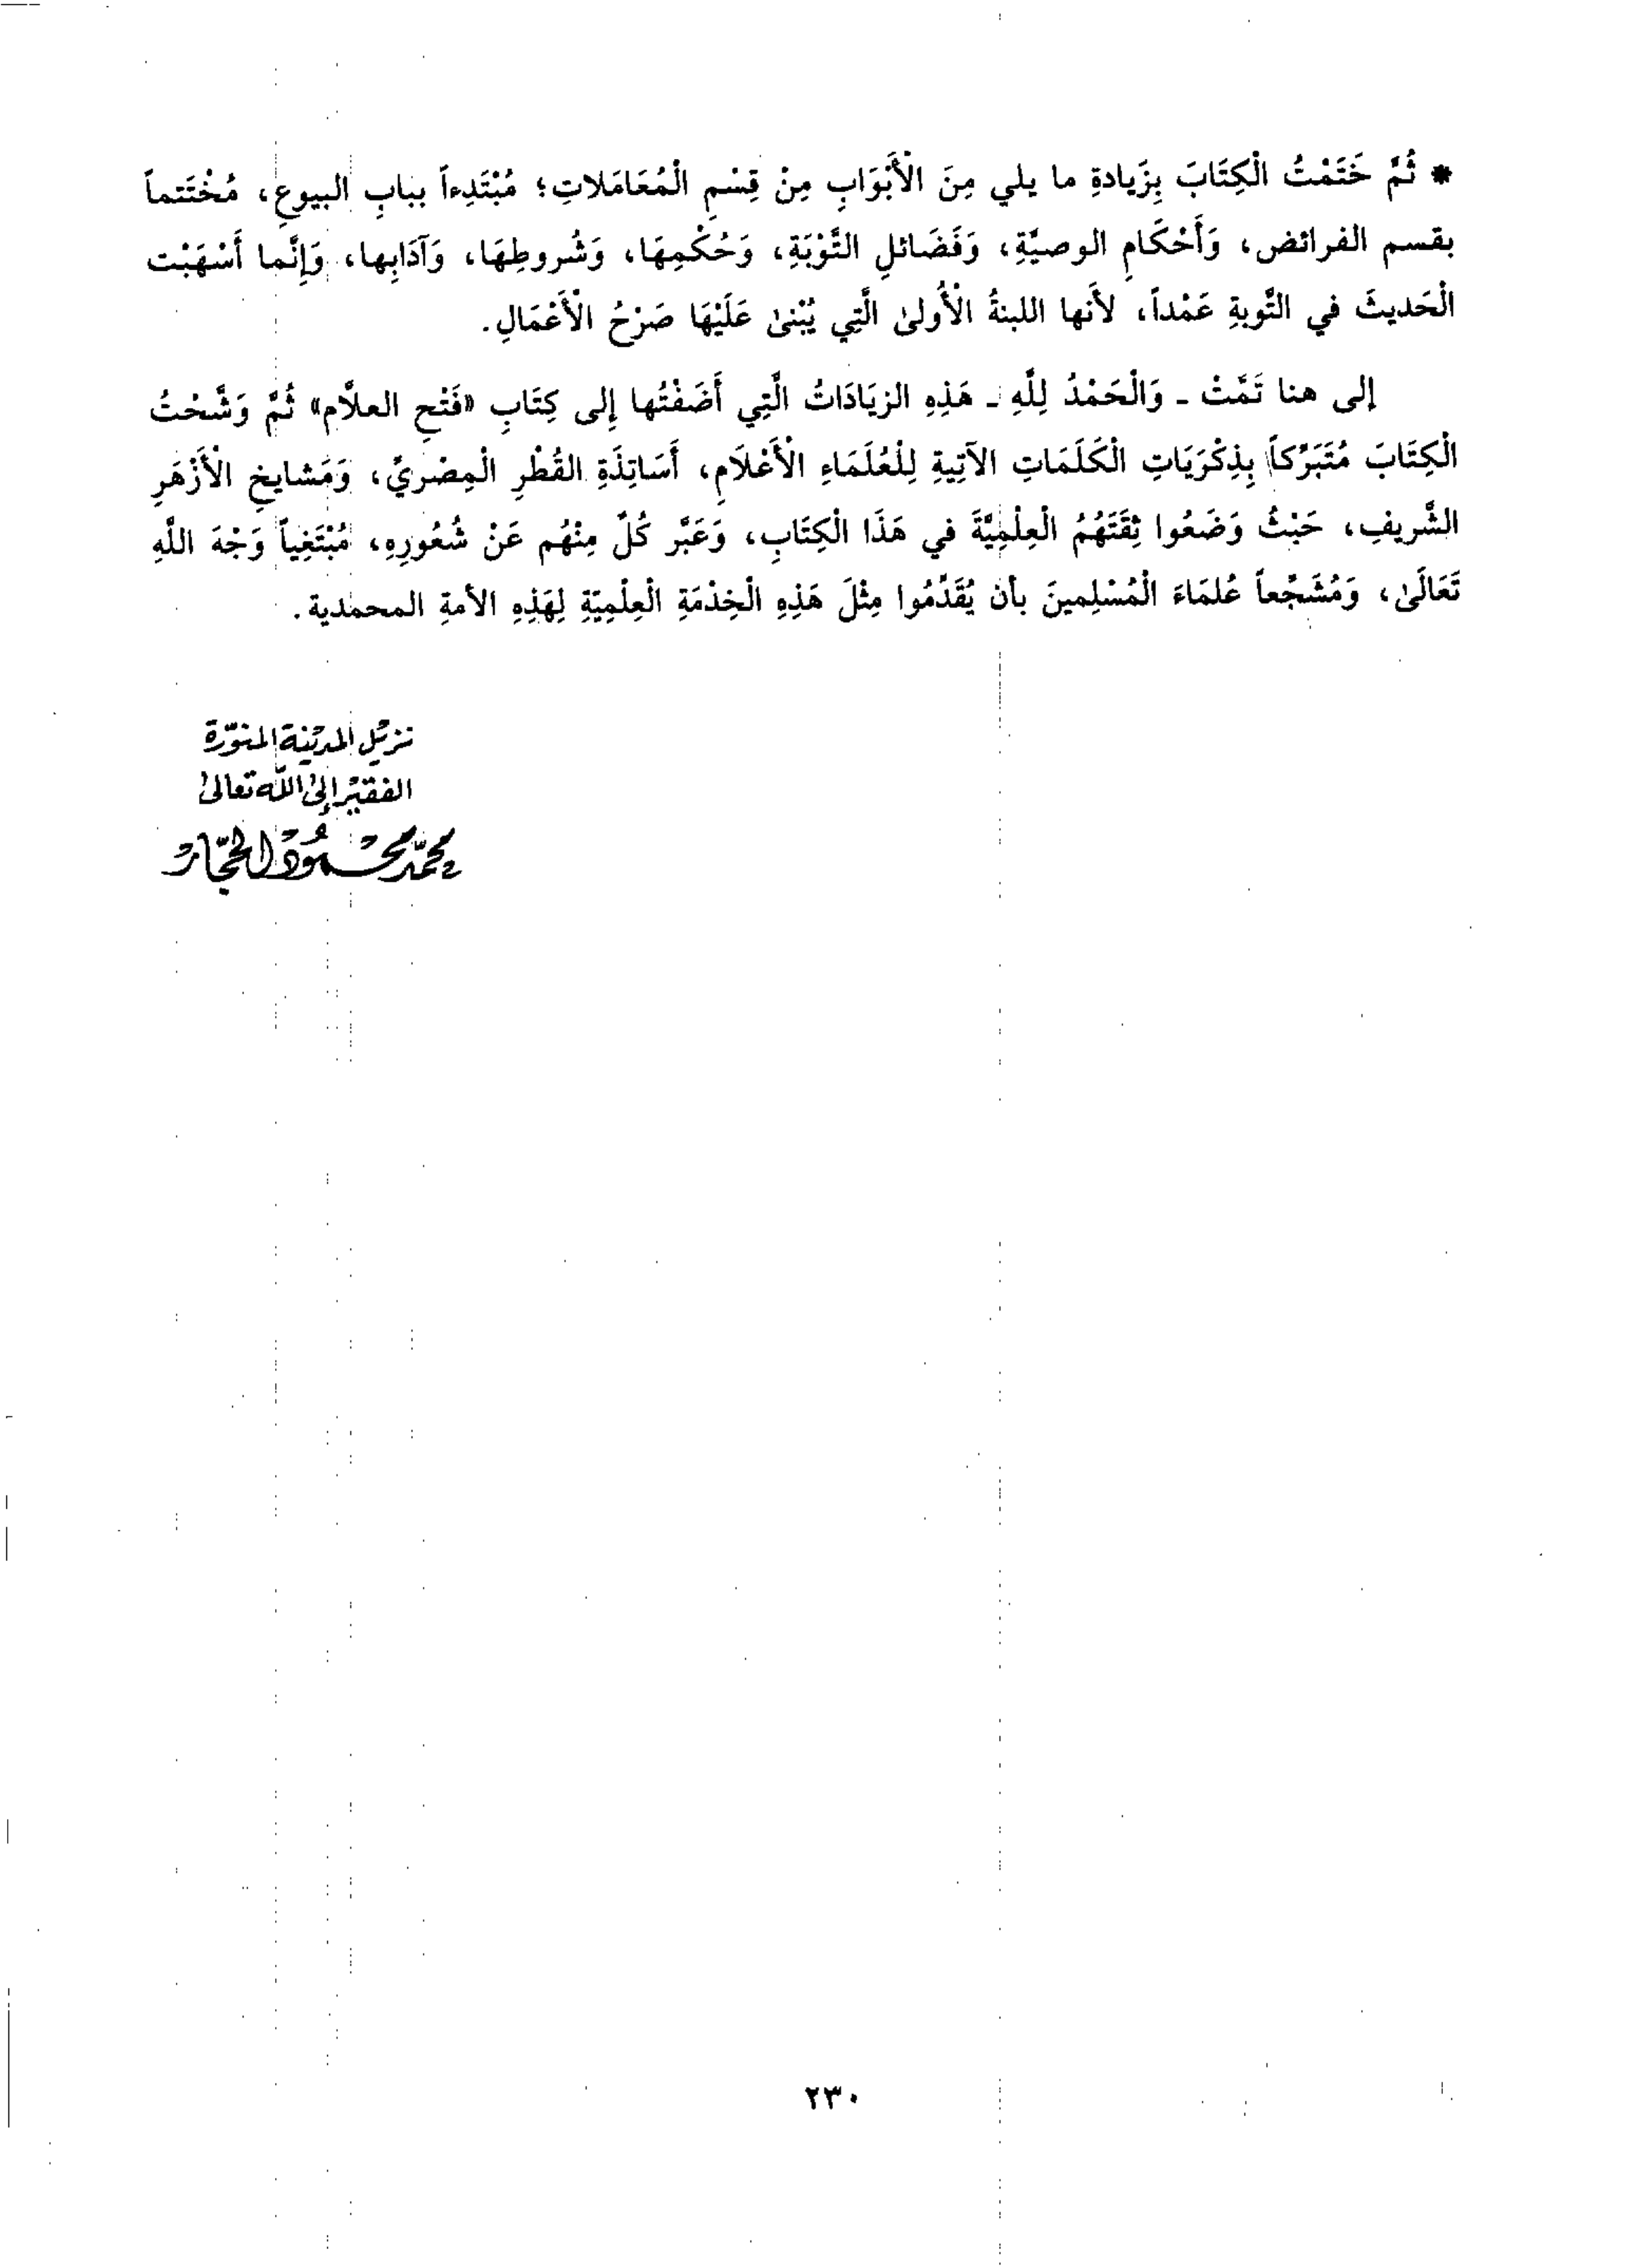 * ثُمَّ خَتَمْتُ الْكِتَابَ بِزَيادةِ ما يلي مِنَ الْأَبْوَابِ مِنْ قِسْمِ الْمُعَامَلاتِ؛ مُبْتَدِءاً ببابِ البيوعِ، مُخْتَتماً
بقسم الفرائض، وَأَحْكَامِ الوصيَّةِ، وَفَضَائلِ التَّوْبَةِ، وَحُكْمِهَا، وَشُروطِهَا، وَآدَابِها، وَإِنَّما أَسْهَبْت
الْحَديثَ في التَّوبةِ عَمْداً، لأَنها اللبنةُ الْأُولىٰ الَّتِي يُبْنىٰ عَلَيْهَا صَرْحُ الْأَعْمَالِ.
إلى هنا تَمَّتْ ـ وَالْحَمْدُ لِلَّهِ ـ هَذِهِ الزيَادَاتُ الَّتِي أَضَفْتُها إِلى كِتَابِ «فَتْحِ العلاَّم» ثُمَّ وَشَّحْتُ
الْكِتَابَ مُتَبَرِّكاً بِذِكْرَيَاتِ الْكَلَمَاتِ الآتِيةِ لِلْعُلَمَاءِ الْأَعْلَامِ، أَسَاتِذَةِ القُطْرِ الْمِصْريِّ، وَمَشايخِ الْأَزْهَرِ
الشَّريفِ، حَيْثُ وَضَعُوا ثِقَتَهُمُ الْعِلْمِيَّةَ في هَذَا الْكِتَابِ، وَعَبَّر كُلٌّ مِنْهُم عَنْ شُعُورِهِ، مُبْتَغِياً وَجْهَ اللَّهِ
تَعَالَىٰ، وَمُشَجِّعاً عُلمَاءَ الْمُسْلِمينَ بأن يُقَدِّمُوا مِثْلَ هَذِهِ الْخِدْمَةِ الْعِلْمِيّةِ لِهَذِهِ الأمةِ المحمدية.
نزيل المدينة المنوّرة
الفقير إلى الله تعالىٰ
محمّد محمود الحجّار
٢٣٠